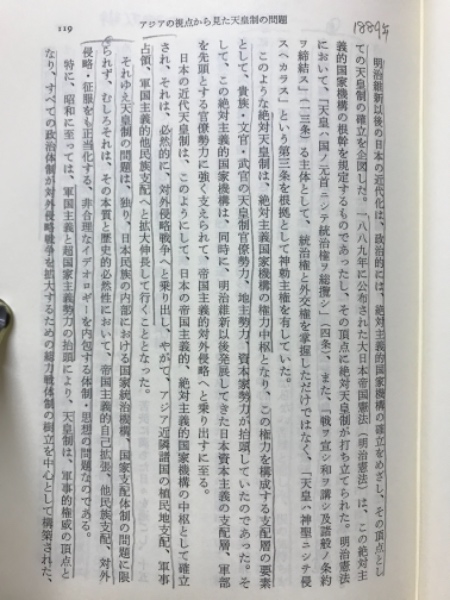 119
アジアの視点から見た天皇制の問題
1889年
明治維新以後の日本の近代化は、政治的には、絶対主義的国家機構の確立をめざし、その頂点とし
ての天皇制の確立を企図した。一八八九年に公布された大日本帝国憲法(明治憲法)は、この絶対主
義的国家機構の根幹を規定するものであったし、その頂点に絶対天皇制が打ち立てられた。明治憲法
において、「天皇ハ国ノ元首ニシテ統治権ヲ総攬シ」(四条)、また、「戦ヲ宣シ和ヲ講シ及諸般ノ条約
ヲ締結ス」(一三条)る主体として、統治権と外交権を掌握しただけではなく、「天皇ハ神聖ニシテ侵
スヘカラス」という第三条を根拠として神勅主権を有していた。
このような絶対天皇制は、絶対主義国家機構の権力中枢となり、この権力を構成する支配層の要素
として、貴族・文官・武官の天皇制官僚勢力、地主勢力、資本家勢力が抬頭していたのであった。そ
して、この絶対主義的国家機構は、同時に、明治維新以後発展してきた日本資本主義の支配層、軍部
を先頭とする官僚勢力に強く支えられて、帝国主義的対外侵略へと乗り出すに至る。
日本の近代天皇制は、このようにして、日本の帝国主義的、絶対主義的国家機構の中枢として確立
され、それは、必然的に、対外侵略戦争へと乗り出し、やがて、アジア近隣諸国の植民地支配、軍事
占領、軍国主義的他民族支配へと拡大伸長して行くこととなった。
それゆえ天皇制の問題は、独り、日本民族の内部における国家統治機構、国家支配体制の問題に限
られず、むしろそれは、その本質と歴史的必然性において、帝国主義的自己拡張、他民族支配、対外
侵略・征服をも正当化する、非合理なイデオロギーを内包する体制・思想の問題なのである。
特に、昭和に至っては、軍国主義と超国家主義勢力の抬頭により、天皇制は、軍事的権威の頂点と
なり、すべての政治体制が対外侵略戦争を拡大するための総力戦体制の樹立を中心として構築された、